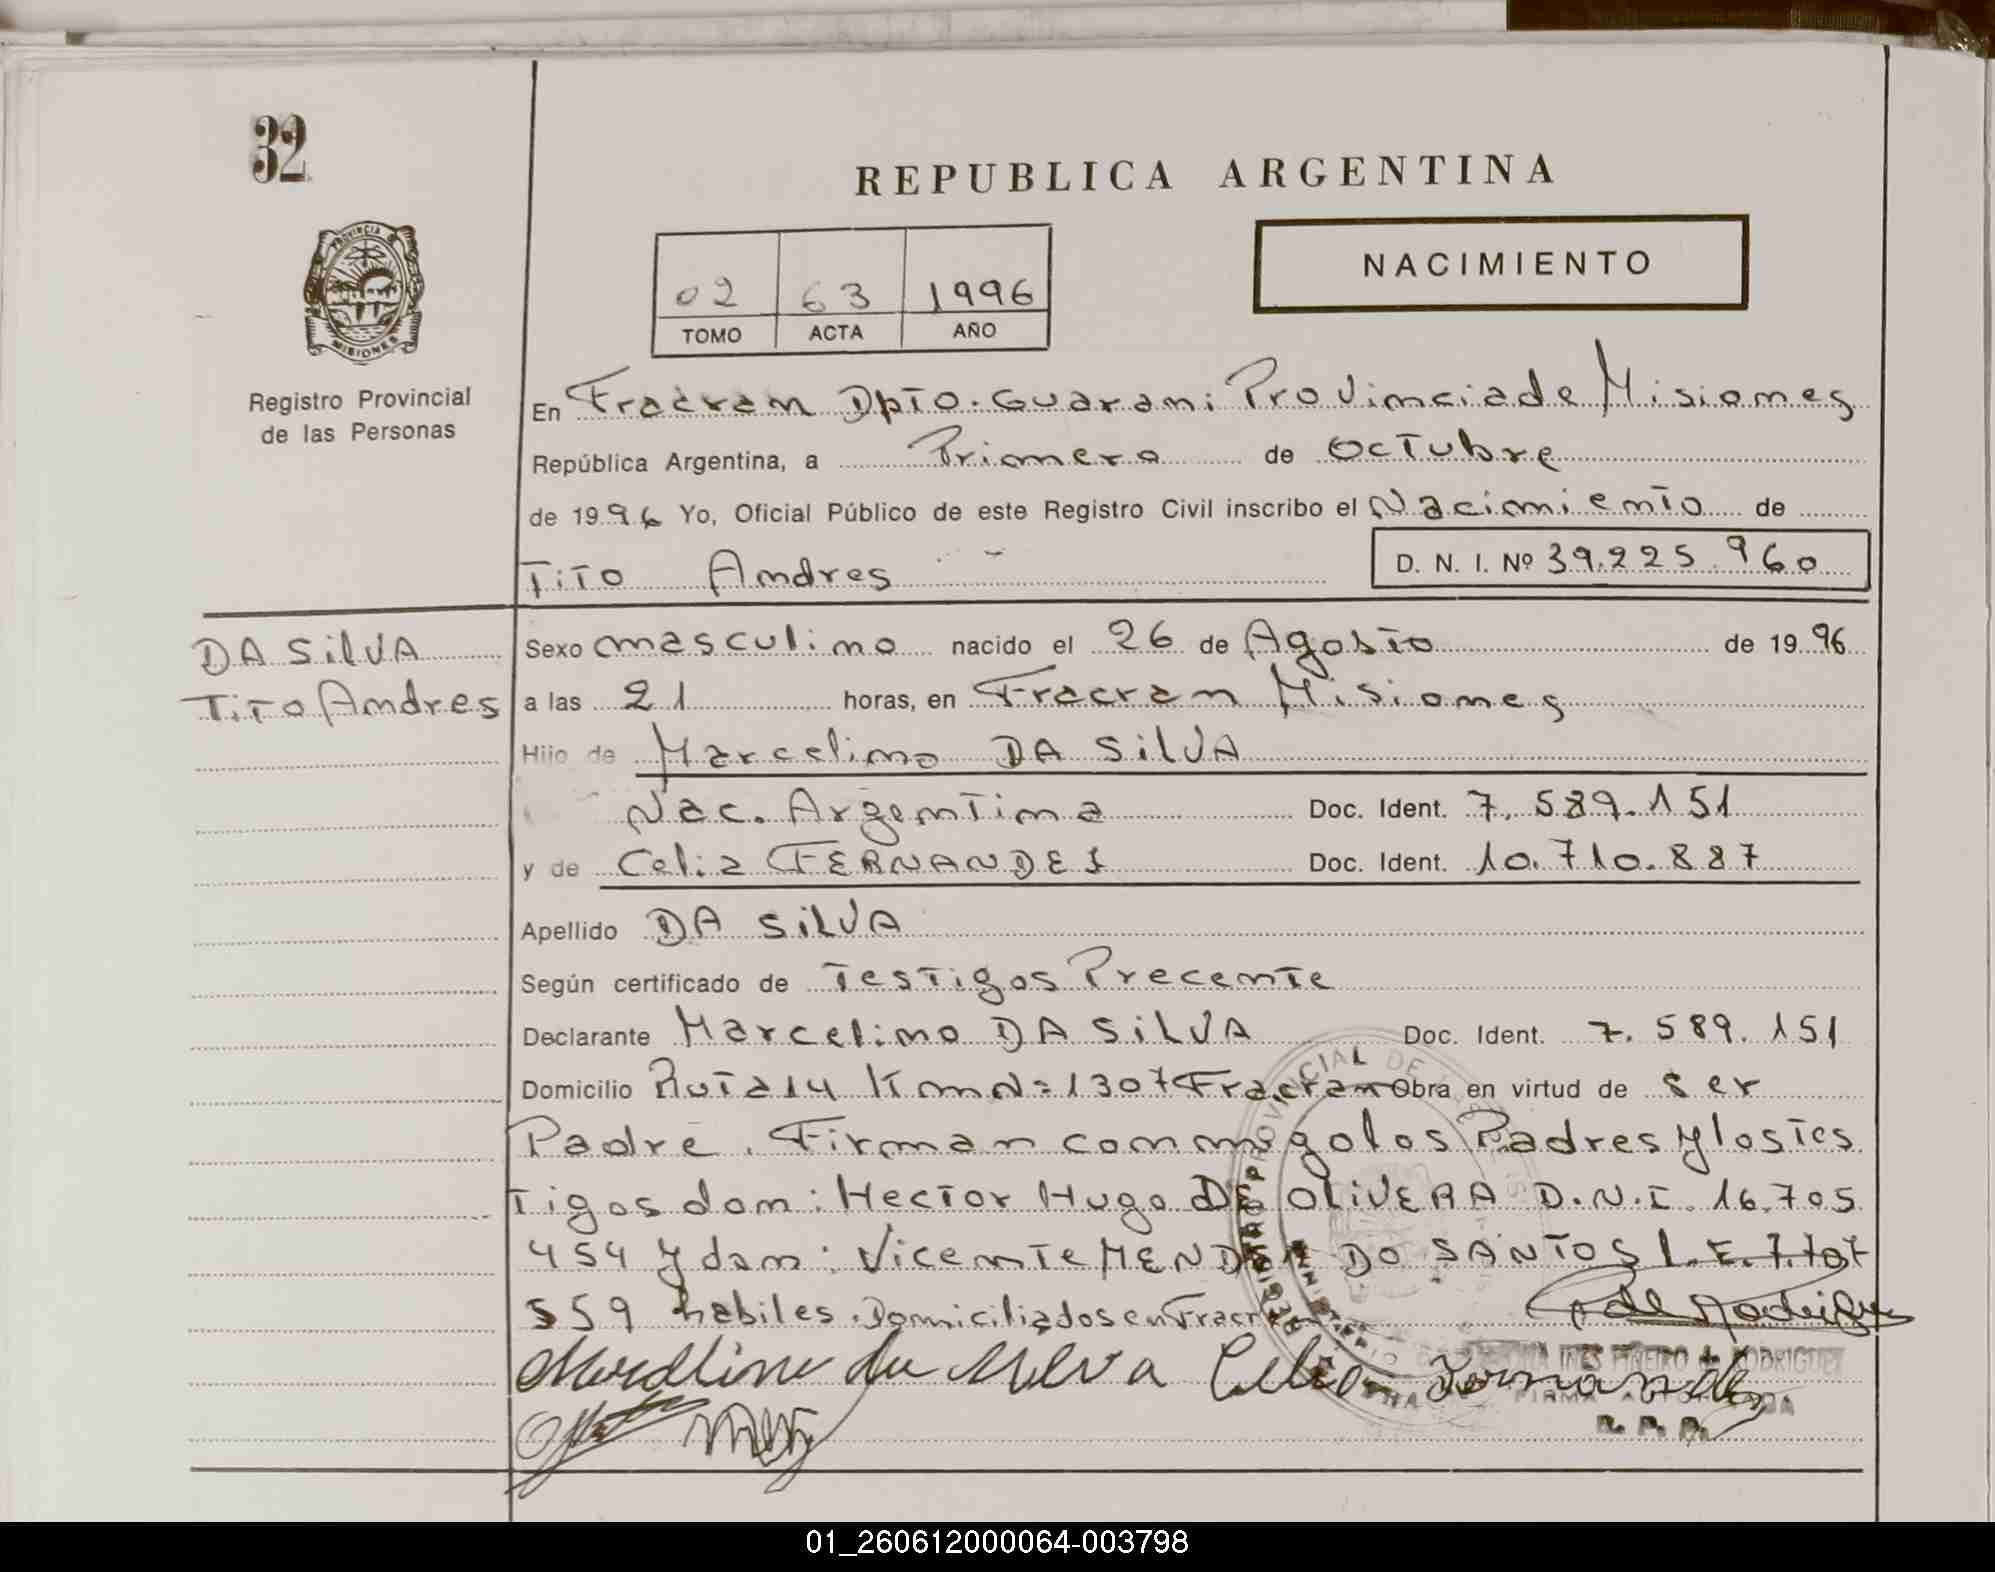 32
REPUBLICA ARGENTINA
PROVINCIA DE
MISIONES
NACIMIENTO
02 63 1996
TOMO ACTA AÑO
Registro Provincial
de las Personas
En Fracran Dpto. Guarani Provincia de Misiones
República Argentina, a Primero de Octubre
de 1996 Yo, Oficial Público de este Registro Civil inscribo el Nacimiento de
Tito Andres D. N. I. Nº 39.225.960
DA SilVA
Tito Andres
Sexo masculino nacido el 26 de Agosto de 1996
a las 21 horas, en Fracran Misiones
Hijo de Marcelino DA SilVA
Nac. Argentina Doc. Ident. 7.589.151
y de Celia FERNANDES Doc. Ident. 10.710.887
Apellido DA SiLVA
Según certificado de Testigos Precente
Declarante Marcelino DA SiLVA Doc. Ident. 7.589.151
Domicilio Ruta 14 Km Nº 1307 Fracran Obra en virtud de ser
Padre. Firman conmigo los Padres y los tes
tigos don: Hector Hugo DE OLiVERA D.N.I. 16.705
454 y don: Vicente DO SANTOS L.E. 7.707
559 habiles. Domiciliados en Fracran
Marcelino da Silva Celia Fernandez
INES PIÑEIRO de RODRIGUEZ
FIRMA AUTORIZADA
R. P. P.
01_260612000064-003798